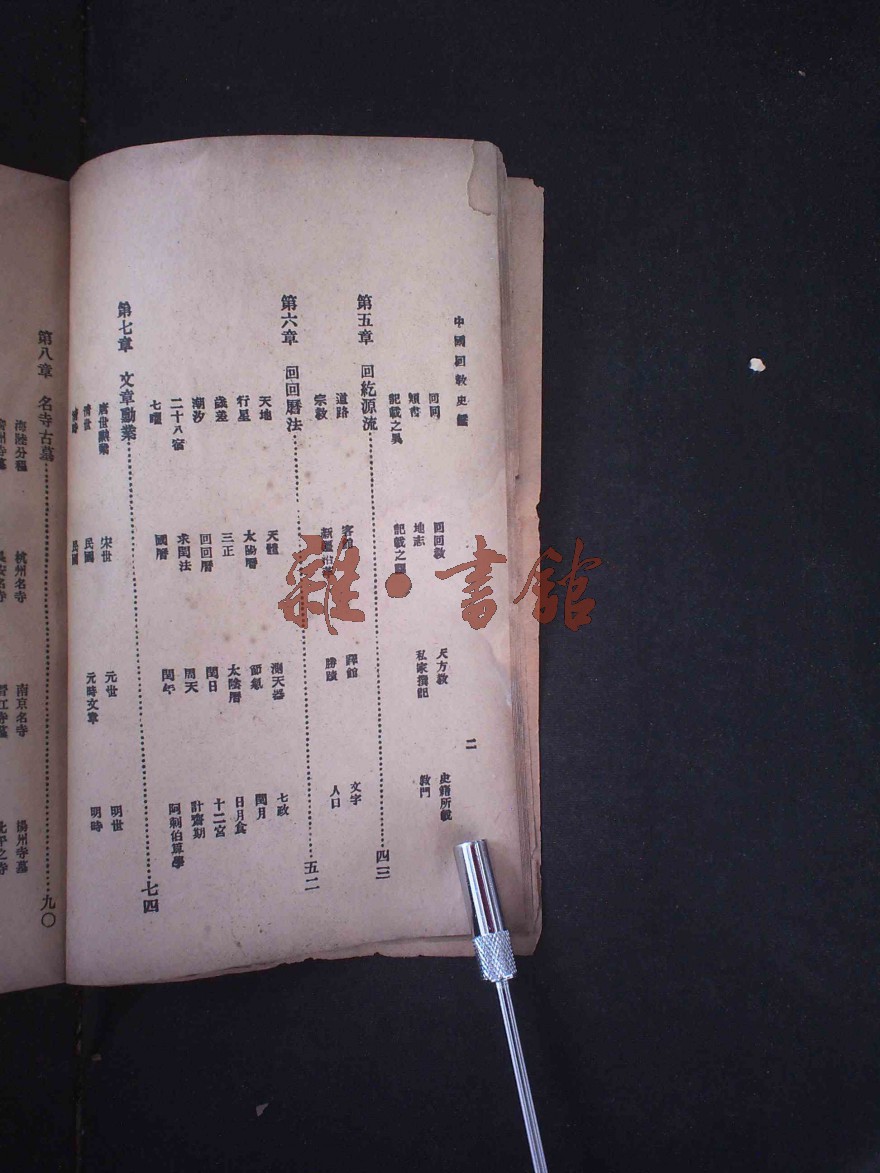 中國回敎史鑑
二
回回
回回敎
天方敎
史籍所載
類書
地志
私家撰記
敎門
記載之異
記載之
第五章　回紇源流
四三
道路
譯館
文字
宗敎
勝蹟
人口
第六章　回回曆法
五二
天地
天體
測天器
七政
行星
太陽曆
節氣
閏月
歲差
三正
太陰曆
日月食
潮汐
回回曆
閏日
十二宮
二十八宿
求閏法
周天
計齋期
七曜
國曆
閏年
阿剌伯算學
第七章　文章勳業
七四
唐世勳業
宋世
元世
明世
淸世
民國
元時文章
明時
淸時
民國
第八章　名寺古墓
九〇
海陸分程
杭州名寺
南京名寺
揚州寺墓
雜·書館